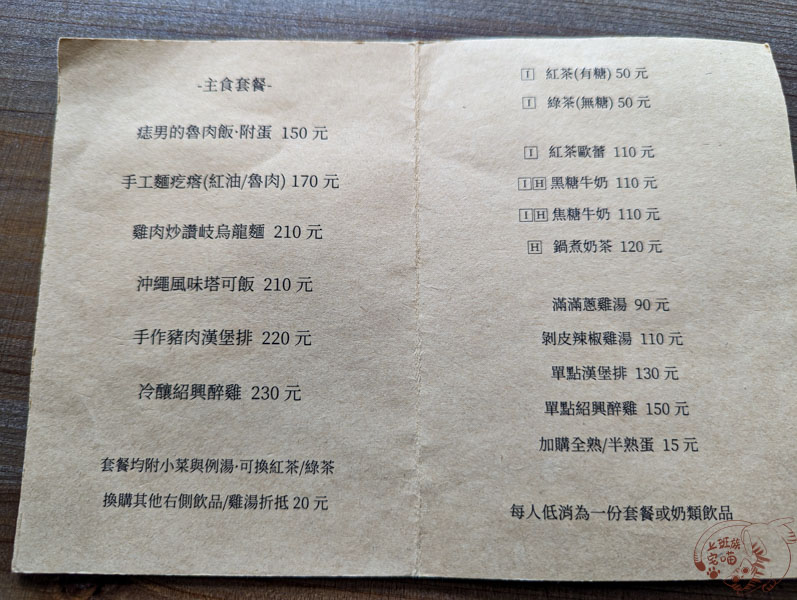 -主食套餐-
痣男的魯肉飯·附蛋 150 元
手工麵疙瘩(紅油/魯肉) 170 元
雞肉炒讚岐烏龍麵 210 元
沖繩風味塔可飯 210 元
手作豬肉漢堡排 220 元
冷釀紹興醉雞 230 元
套餐均附小菜與例湯·可換紅茶/綠茶
換購其他右側飲品/雞湯折抵 20 元
I 紅茶(有糖) 50 元
I 綠茶(無糖) 50 元
I 紅茶歐蕾 110 元
I H 黑糖牛奶 110 元
I H 焦糖牛奶 110 元
H 鍋煮奶茶 120 元
滿滿蔥雞湯 90 元
剝皮辣椒雞湯 110 元
單點漢堡排 130 元
單點紹興醉雞 150 元
加購全熟/半熟蛋 15 元
每人低消為一份套餐或奶類飲品
上班族
宅喵